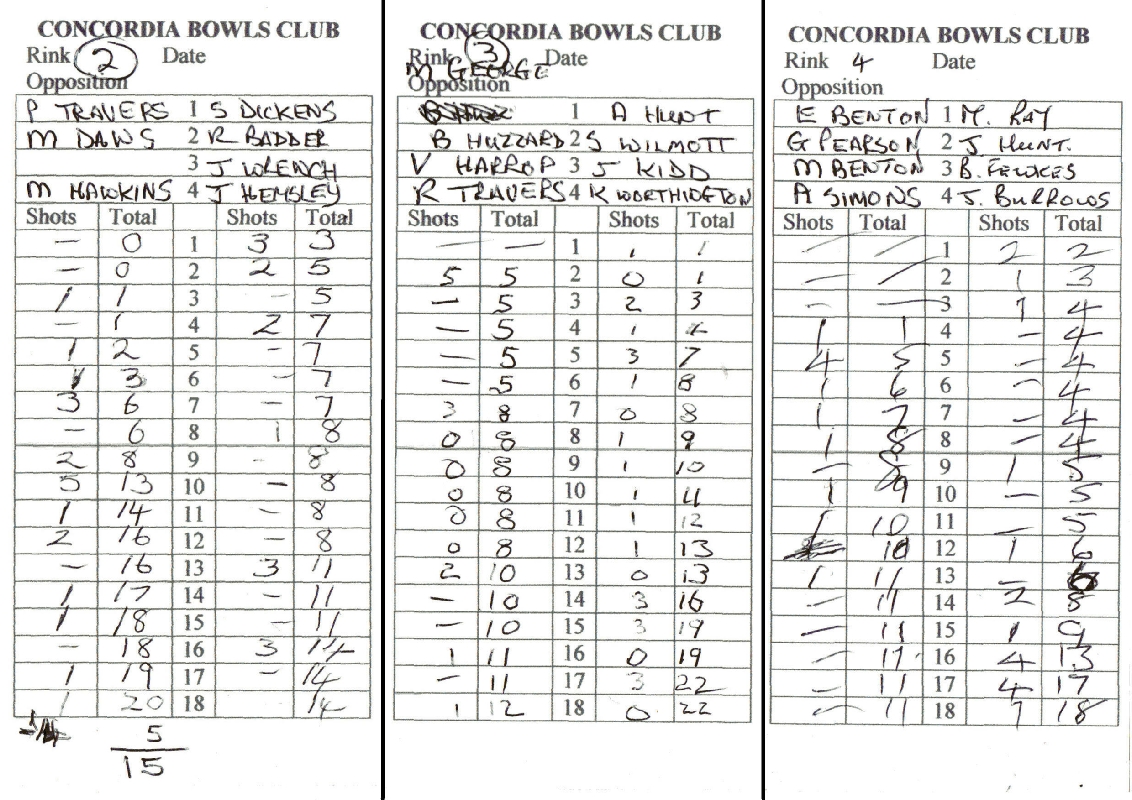 CONCORDIA BOWLS CLUB
Rink 2 Date
Opposition
P TRAVERS 1 S DICKENS
M DAWS 2 R BADDER
3 J WRENCH
M HAWKINS 4 J HEMSLEY
Shots Total Shots Total
- 0 1 3 3
- 0 2 2 5
1 1 3 - 5
- 1 4 2 7
1 2 5 - 7
1 3 6 - 7
3 6 7 - 7
- 6 8 1 8
2 8 9 - 8
5 13 10 - 8
1 14 11 - 8
2 16 12 - 8
- 16 13 3 11
1 17 14 - 11
1 18 15 - 11
- 18 16 3 14
1 19 17 - 14
1 20 18 14
5
15
CONCORDIA BOWLS CLUB
Rink 3 Date
M GEORGE
Opposition
1 A HUNT
B HUZZARD 2 S WILMOTT
V HARROP 3 J KIDD
R TRAVERS 4 K WORTHINGTON
Shots Total Shots Total
- - 1 1 1
5 5 2 0 1
- 5 3 2 3
- 5 4 1 4
- 5 5 3 7
- 5 6 1 8
3 8 7 0 8
0 8 8 1 9
0 8 9 1 10
0 8 10 1 11
0 8 11 1 12
0 8 12 1 13
2 10 13 0 13
- 10 14 3 16
- 10 15 3 19
1 11 16 0 19
- 11 17 3 22
1 12 18 0 22
CONCORDIA BOWLS CLUB
Rink 4 Date
Opposition
E BENTON 1 M. RAY
G PEARSON 2 J. HUNT.
M BENTON 3 B. FEWKES
A SIMONS 4 J. BURROWS
Shots Total Shots Total
- - 1 2 2
- - 2 1 3
- - 3 1 4
1 1 4 - 4
4 5 5 - 4
1 6 6 - 4
1 7 7 - 4
1 8 8 - 4
- 8 9 1 5
1 9 10 - 5
1 10 11 - 5
10 12 1 6
1 11 13 - 6
- 11 14 2 8
- 11 15 1 9
- 11 16 4 13
- 11 17 4 17
- 11 18 1 18